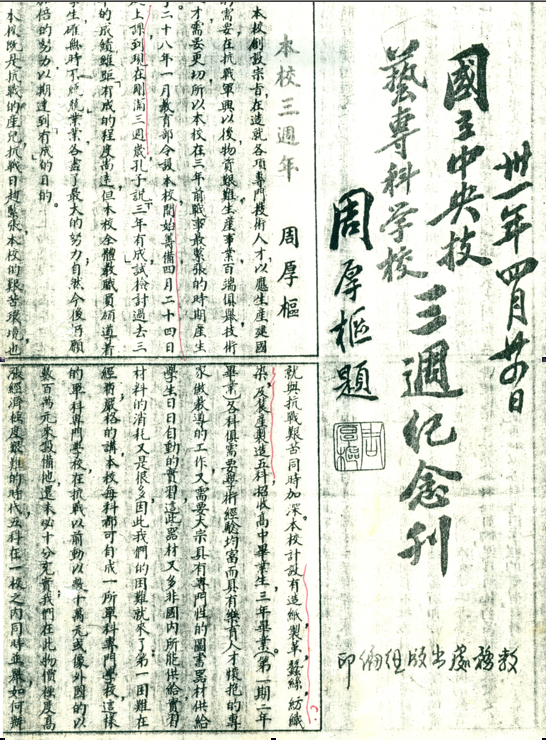 卅一年四月廿四日
國立中央技
藝專科学校
三週纪念刊
周厚樞題
教務處出版组编印
本校三週年 周厚樞
本校創設宗旨在造就各項專門技術人才以應生産建國
的需要在抗戰軍興以後物資艱難生産事業百端俱舉技術
人才需要更切所以本校在三年前戰事最緊張的時期産生
了二十八年一月教育部令設本校開始籌備四月二十四日
上課到現在剛滿三週歲孔子說「三年有成」試檢討過去三
年的成績雖距有成的程度尚遠但本校全體教職員頌道着
學生確無時不兢兢業業各盡了最大的努力自然今後仍願
倍的努力以期達到有成的目的。
本校既是抗戰的產兒抗戰日趨緊張本校的艱苦環境也
就與抗戰艱苦同時加深本校計設有造紙製革蠶絲紡織
染及農産製造五科招收高中畢業生三年畢業。第一期二年
畢業各科俱需要學術經驗均富而具有樂育人才懷抱的專
家做教導的工作又需要大宗具有專門性的圖書器材供給
學生日日自動的實習這些器材又多非國内所能供給實習
材料的消耗又是很多因此我們的困難就來了第一困難在
經費嚴格的講本校每科都可自成一所單科專門學校這樣
的單科專門學校在抗戰以前動以數十萬元或像外國的以
數百萬元來設備他還未必十分充實我們在此物價極度高
漲經濟極度艱難的時代五科在一校之内同時並舉如何辦